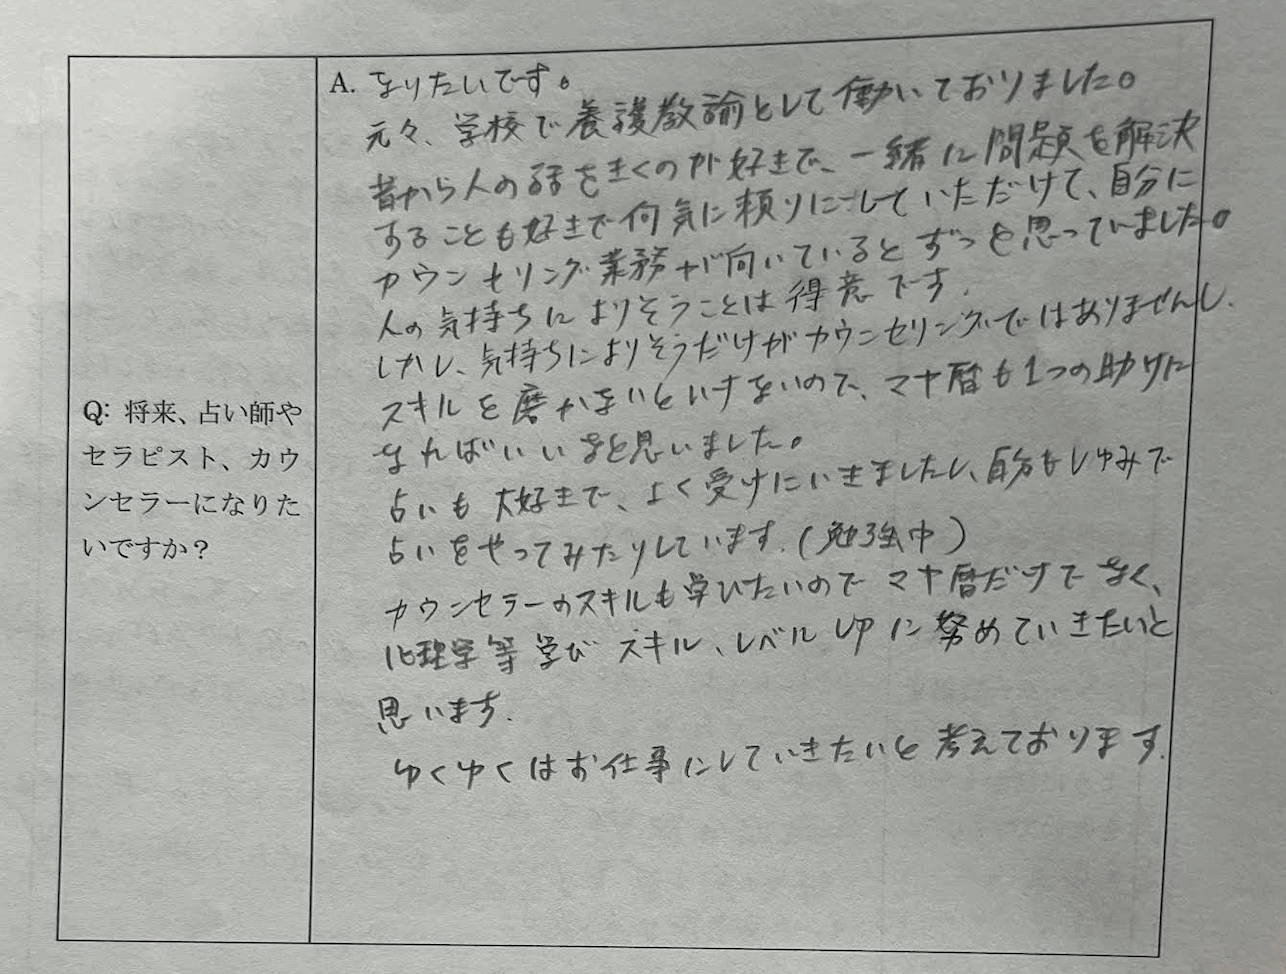 Q: 将来、占い師や
セラピスト、カウ
ンセラーになりた
いですか？
A. なりたいです。
元々、学校で養護教諭として働いておりました。
昔から人の話をきくのが好きで、一緒に問題を解決
することも好きで何気に頼りにしていただけて、自分に
カウンセリング業務が向いているとずっと思っていました。
人の気持ちによりそうことは得意です.
しかし、気持ちによりそうだけがカウンセリングではありませんし.
スキルを磨かないといけないので、マヤ暦も1つの助けに
なればいいなと思いました。
占いも大好きで、よく受けにいきましたし、自分もしゅみで
占いをやってみたりしています.(勉強中)
カウンセラーのスキルも学びたいのでマヤ暦だけでなく、
心理学等学びスキル、レベルupに努めていきたいと
思います.
ゆくゆくはお仕事にしていきたいと考えております.